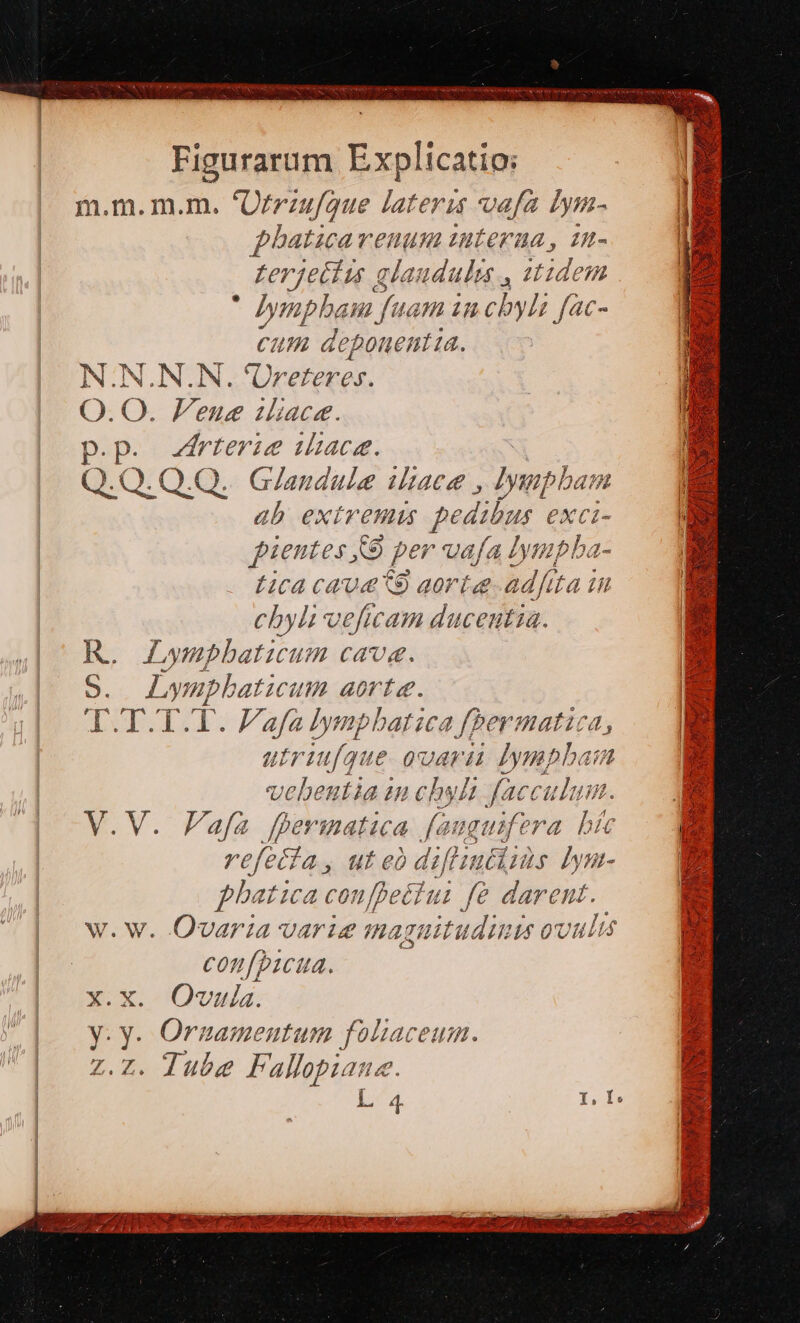 Figurarum Explicatio:
m.m.m.m. Utriuſque lateris vaſa lym-
phatica renum interna, in-
terjectis glandulis, itidem
lympham ſuam in chyli ſac-
cum deponentia.
N.N.N.N. Ureteres.
O.O. Venæ iliacæ.
p.p. Arteriæ iliacæ.
Q.Q.Q.Q. Glandulæ iliacæ, lympham
ab extremis pedibus exci-
pientes, & per vaſa lympha-
tica cavæ & aortæ adſita in
chyli veſicam ducentia.
R. Lymphaticum cavæ.
S. Lymphaticum aortæ.
T.T.T.T. Vaſa lymphatica ſpermatica,
utriuſque ovarii lympham
vehentia in chyli ſacculum.
V.V. Vaſa ſpermatica ſanguifera hic
reſecta, ut eò diſtinctiùs lym-
phatica conſpectui ſe darent.
w.w. Ovaria variæ magnitudinis ovulis
conſpicua.
x.x. Ovula.
y.y. Ornamentum foliaceum.
z.z. Tubæ Fallopianæ.
L 4 I. I.